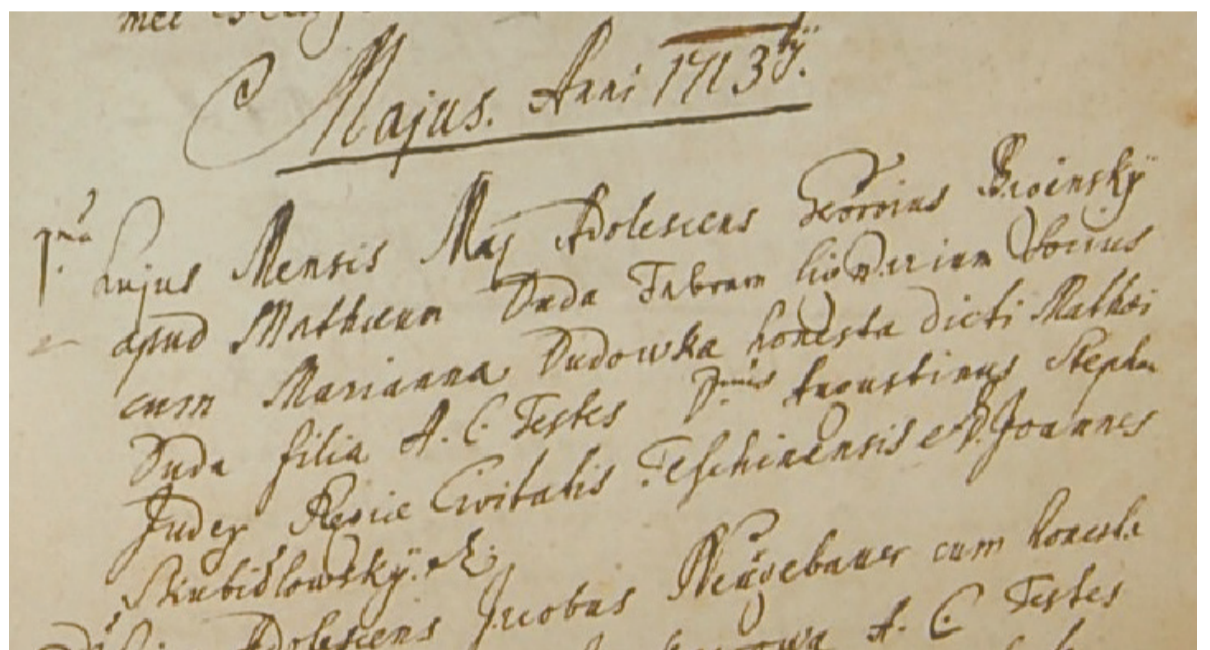 Majus. Anni 1713tÿ.
1ma hujus Mensis Maj Adolescens Georgius Broinskÿ
apud Mathæum Duda Fabrum lignarium Socius
cum Marianna Dudowka honesta dicti Mathæi
Duda filia A. C. Testes Augustinus Stephan
Judex Regiæ Civitatis Teschinensis et D. Joannes
Adolescens Jacobus Neugebauer cum honesta
A. C. Testes